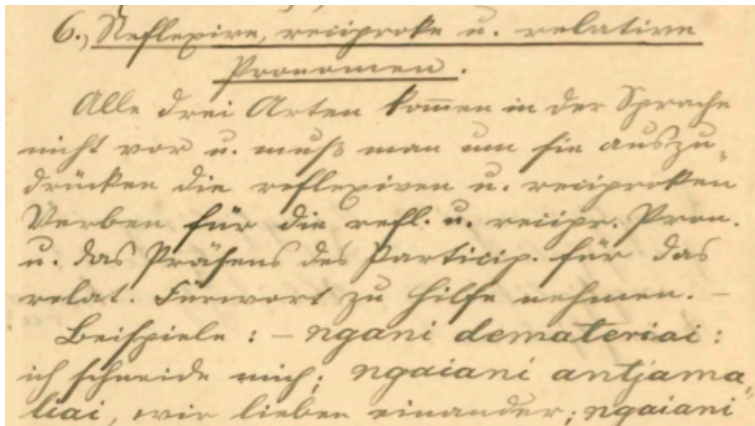 6., Reflexive, reciproke u. relative
Pronomen.
Alle drei Arten kom̄en in der Sprache
nicht vor u. muß man um sie auszu„
drücken die reflexiven u. reciproken
Verben für die refl. u. recipr. Pron.
u. das Präsens des Particip. für das
relat. Fürwort zu Hilfe nehmen. –
Beispiele : – ngani demateriai :
ich schneide mich; ngaiani antjama„
liai, wir lieben einander; ngaiani